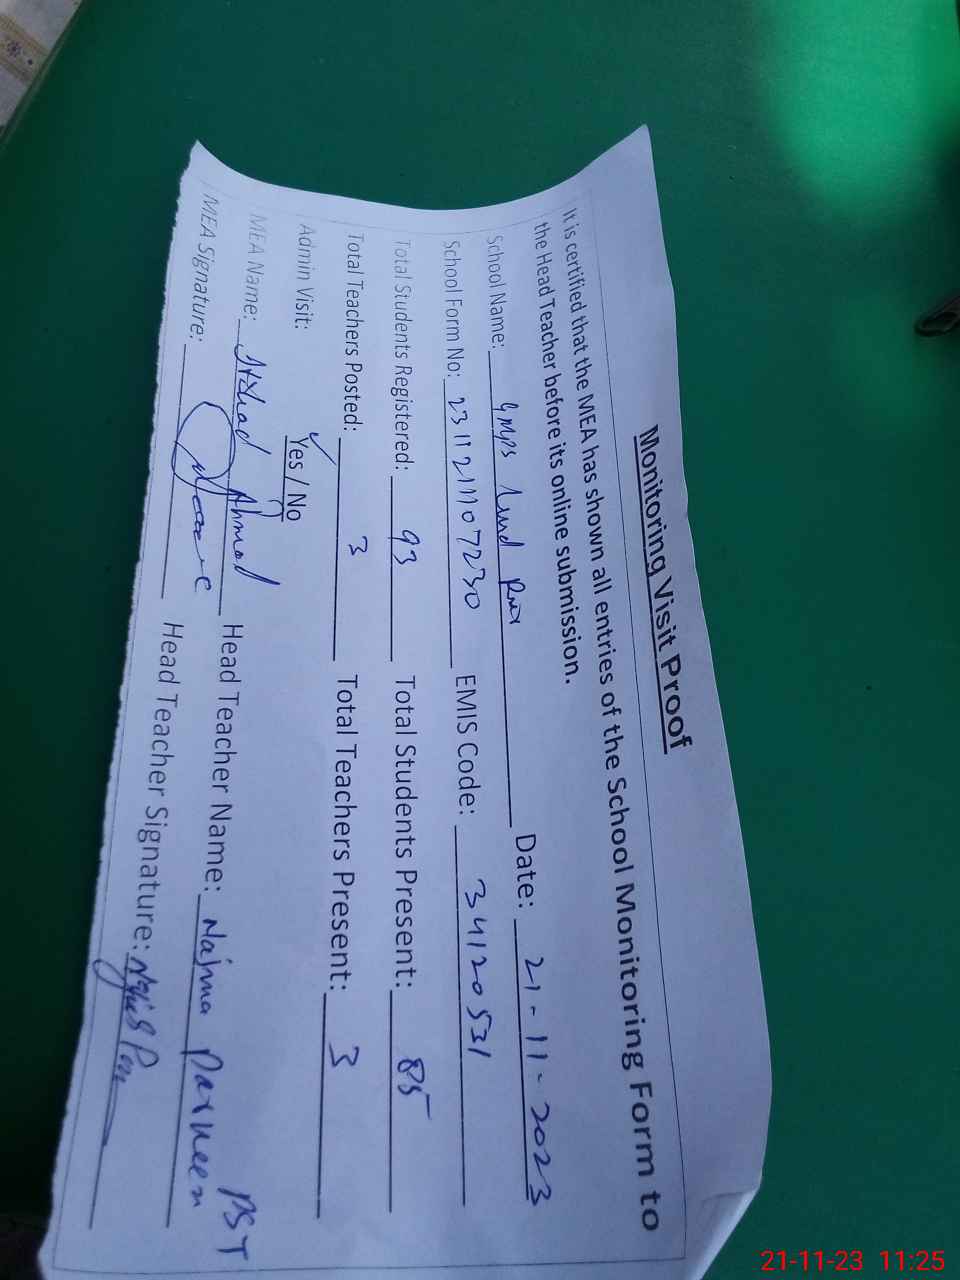 Monitoring Visit Proof
It is certified that the MEA has shown all entries of the School Monitoring Form to
the Head Teacher before its online submission.
School Name: GMPS Lund Date: 21-11-2023
School Form No: 231121107230 EMIS Code: 34120531
Total Students Registered: 93 Total Students Present: 85
Total Teachers Posted: 3 Total Teachers Present: 3
Admin Visit: ✓ Yes / No
MEA Name: Ahmad Head Teacher Name: Najma Parveen PST
MEA Signature: Head Teacher Signature:
21-11-23 11:25